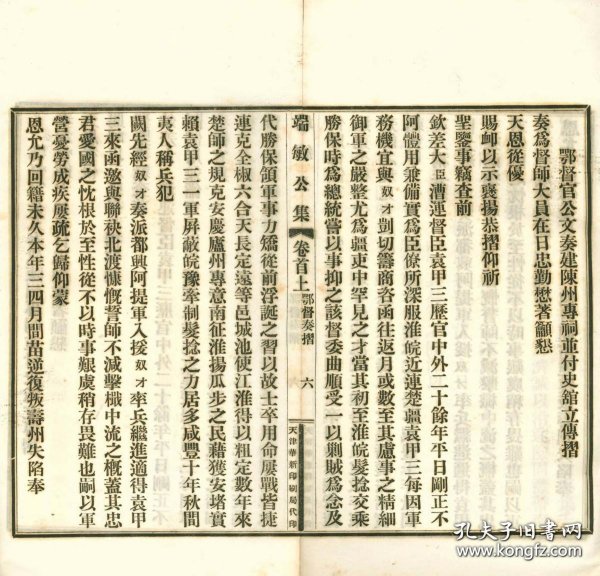 鄂督官公文奏建陳州專祠並付史館立傳摺
奏爲督師大員在日忠勤懋著籲懇
天恩從優
賜卹以示褒揚恭摺仰祈
聖鑒事竊查前
欽差大臣漕運督臣袁甲三歷官中外二十餘年平日剛正不
阿體用兼備實爲臣僚所深服淮皖近連楚疆袁甲三每因軍
務機宜與奴才剴切籌商咨函往返月或數至其慮事之精細
御軍之嚴整尤爲疆吏中罕見之才當其初至淮皖髮捻交乘
勝保時爲總統嘗以事抑之該督委曲順受一以剿賊爲念及
端敏公集
卷首上
鄂督奏摺
六
天津華新印刷局代印
代勝保領軍事力矯從前浮誕之習以故士卒用命屢戰皆捷
連克全椒六合天長定遠等邑城池使江淮得以粗定數年來
楚師之規克安慶廬州專意南征淮揚瓜步之民藉獲安堵實
賴袁甲三一軍屏蔽皖豫牽制髮捻之力居多咸豐十年秋間
夷人稱兵犯
闕先經奴才奏派都興阿提軍入援奴才率兵繼進適得袁甲
三來函邀與聯袂北渡慷慨誓師不減擊檝中流之概蓋其忠
君愛國之忱根於至性從不以時事艱虞稍存畏難也嗣以軍
營憂勞成疾屢疏乞歸仰蒙
恩允乃回籍未久本年三四月間苗逆復叛壽州失陷奉
孔夫子旧书网
www.kongfz.com